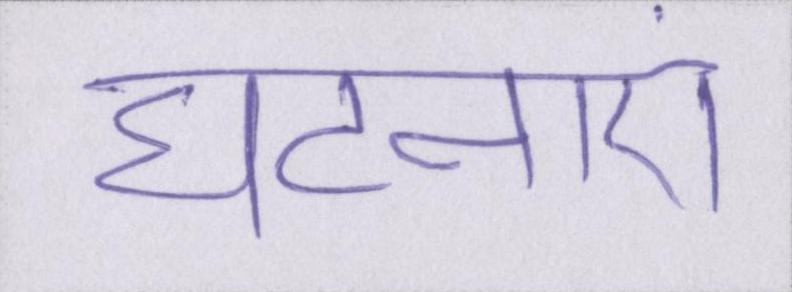 घटनाएं